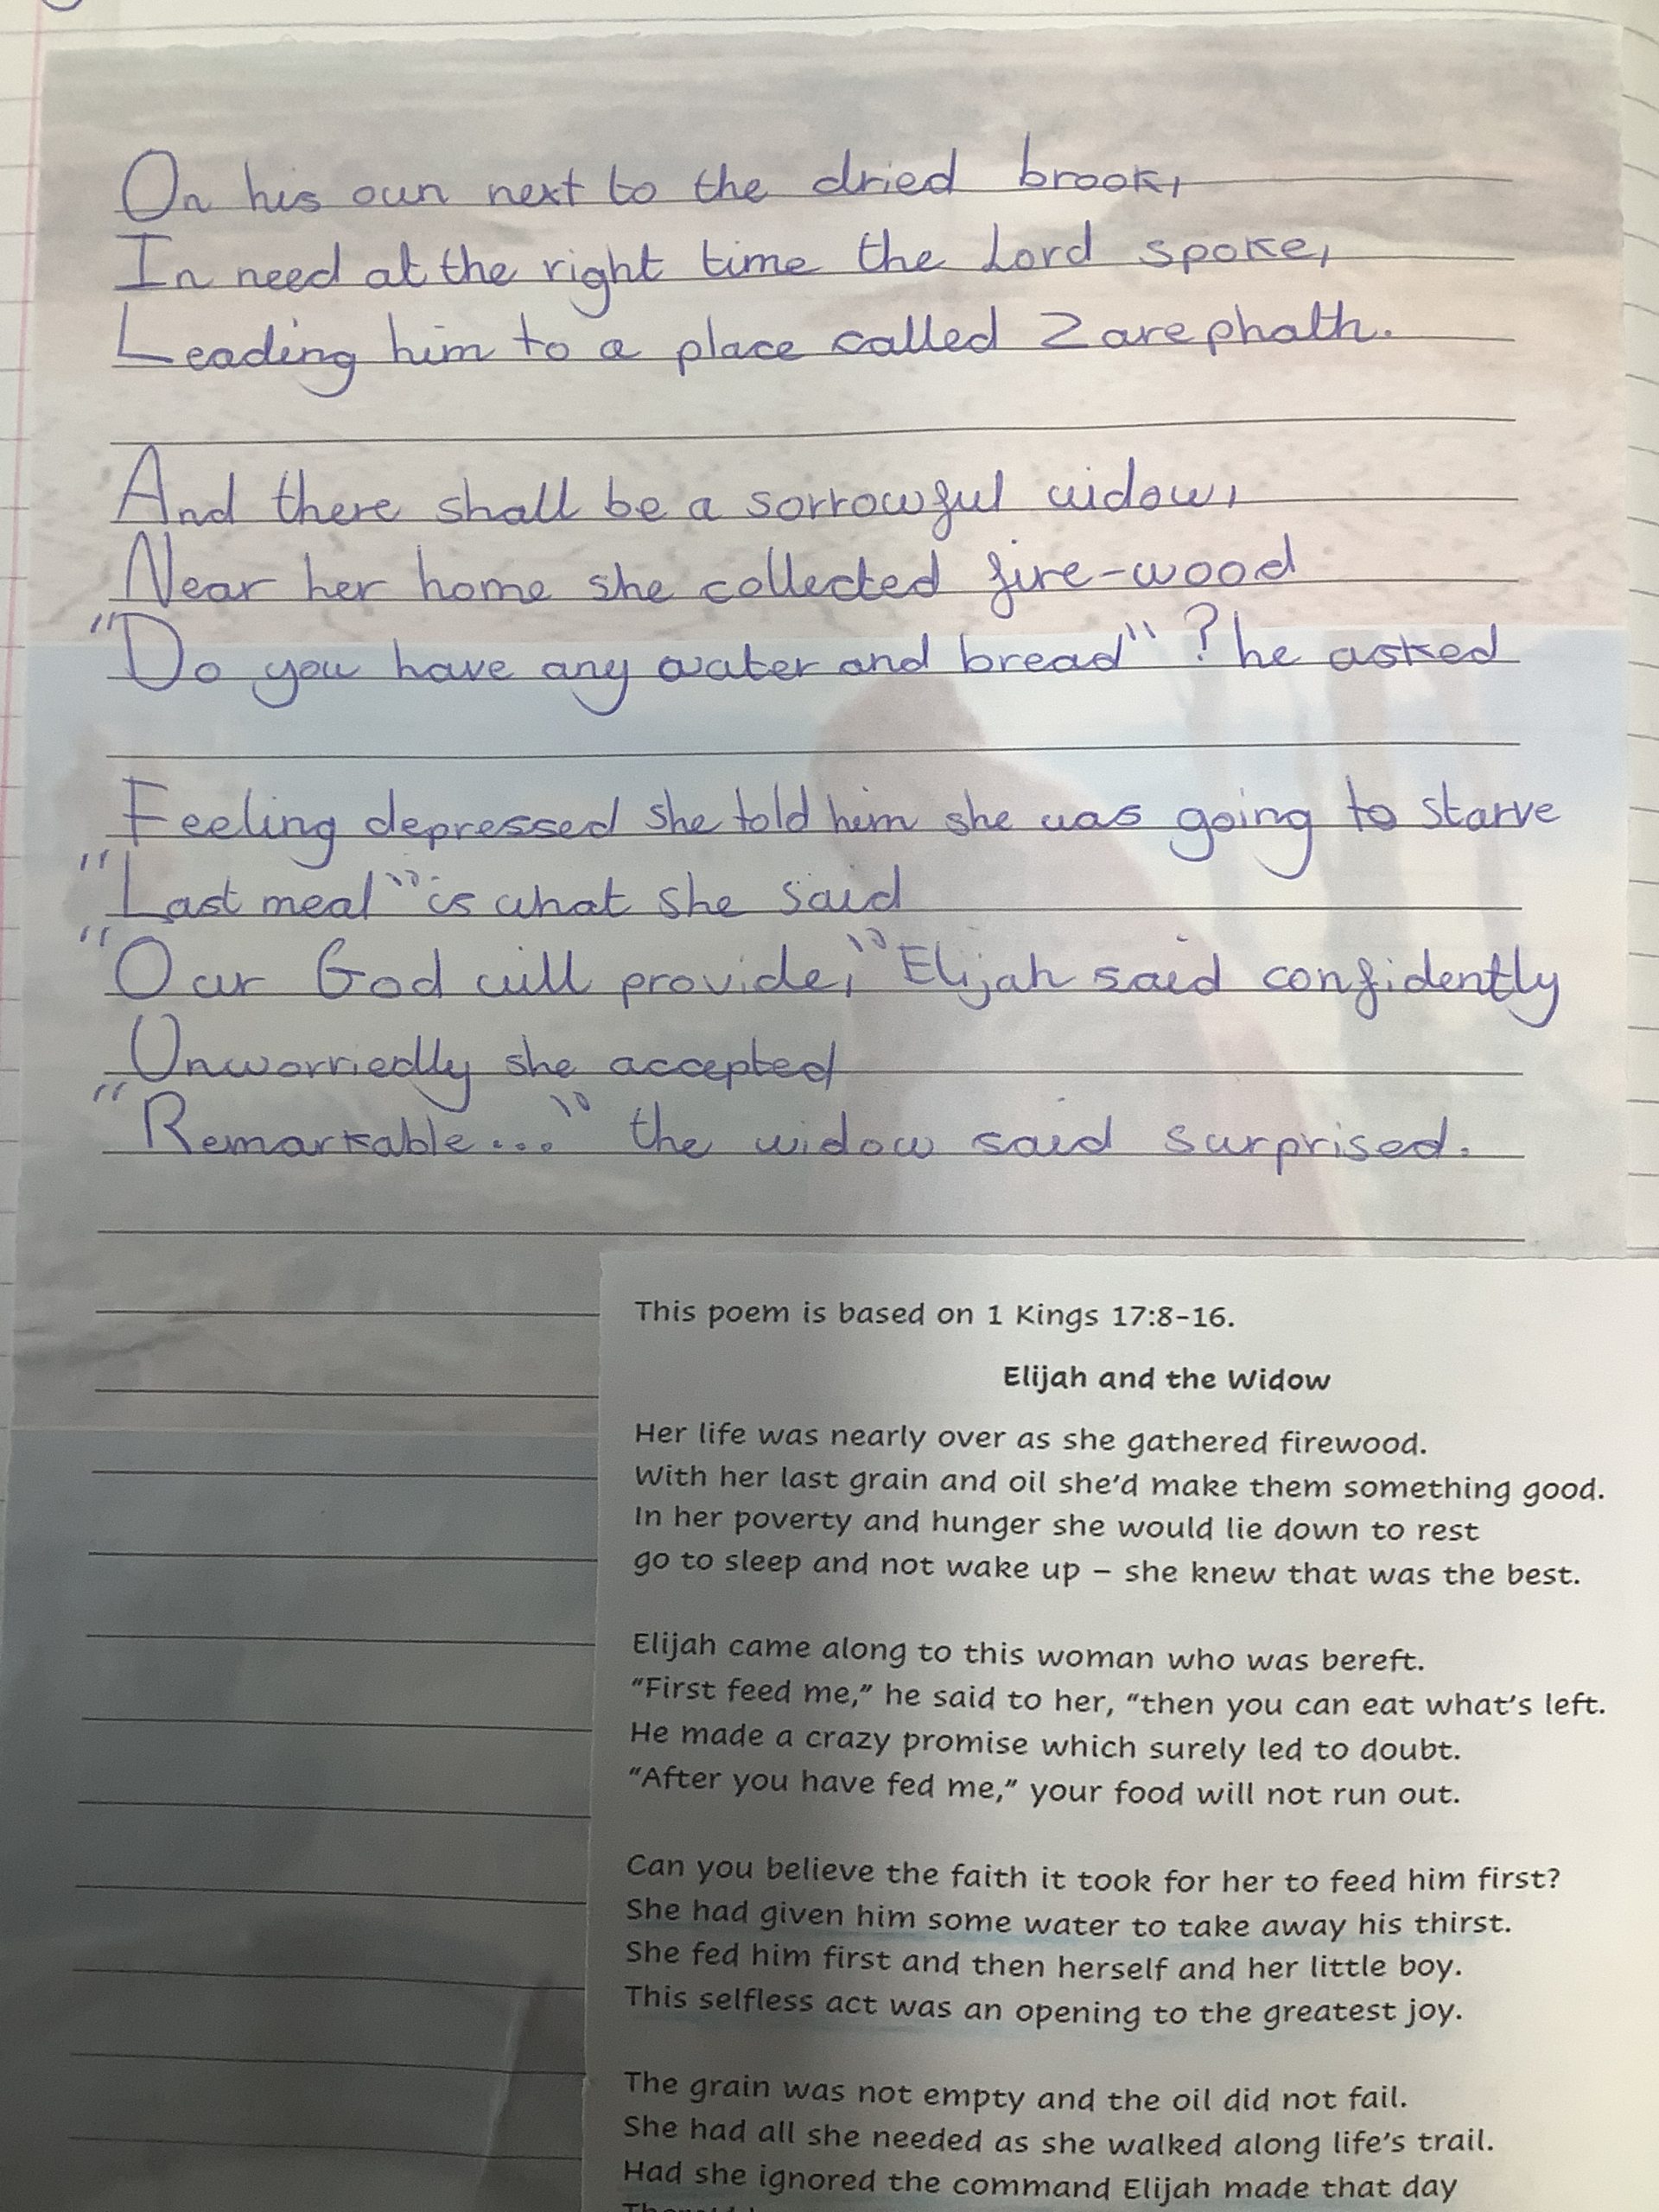 On his own next to the dried brook,
In need at the right time the Lord spoke,
Leading him to a place called Zarephath.
And there shall be a sorrowful widow,
Near her home she collected fire-wood
"Do you have any water and bread"? he asked
Feeling depressed she told him she was going to starve
"Last meal" is what she said
"Our God will provide," Elijah said confidently
Unworriedly she accepted
"Remarkable..." the widow said surprised.
This poem is based on 1 Kings 17:8-16.
Elijah and the Widow
Her life was nearly over as she gathered firewood.
With her last grain and oil she'd make them something good.
In her poverty and hunger she would lie down to rest
go to sleep and not wake up – she knew that was the best.
Elijah came along to this woman who was bereft.
"First feed me," he said to her, "then you can eat what's left.
He made a crazy promise which surely led to doubt.
"After you have fed me," your food will not run out.
Can you believe the faith it took for her to feed him first?
She had given him some water to take away his thirst.
She fed him first and then herself and her little boy.
This selfless act was an opening to the greatest joy.
The grain was not empty and the oil did not fail.
She had all she needed as she walked along life's trail.
Had she ignored the command Elijah made that day